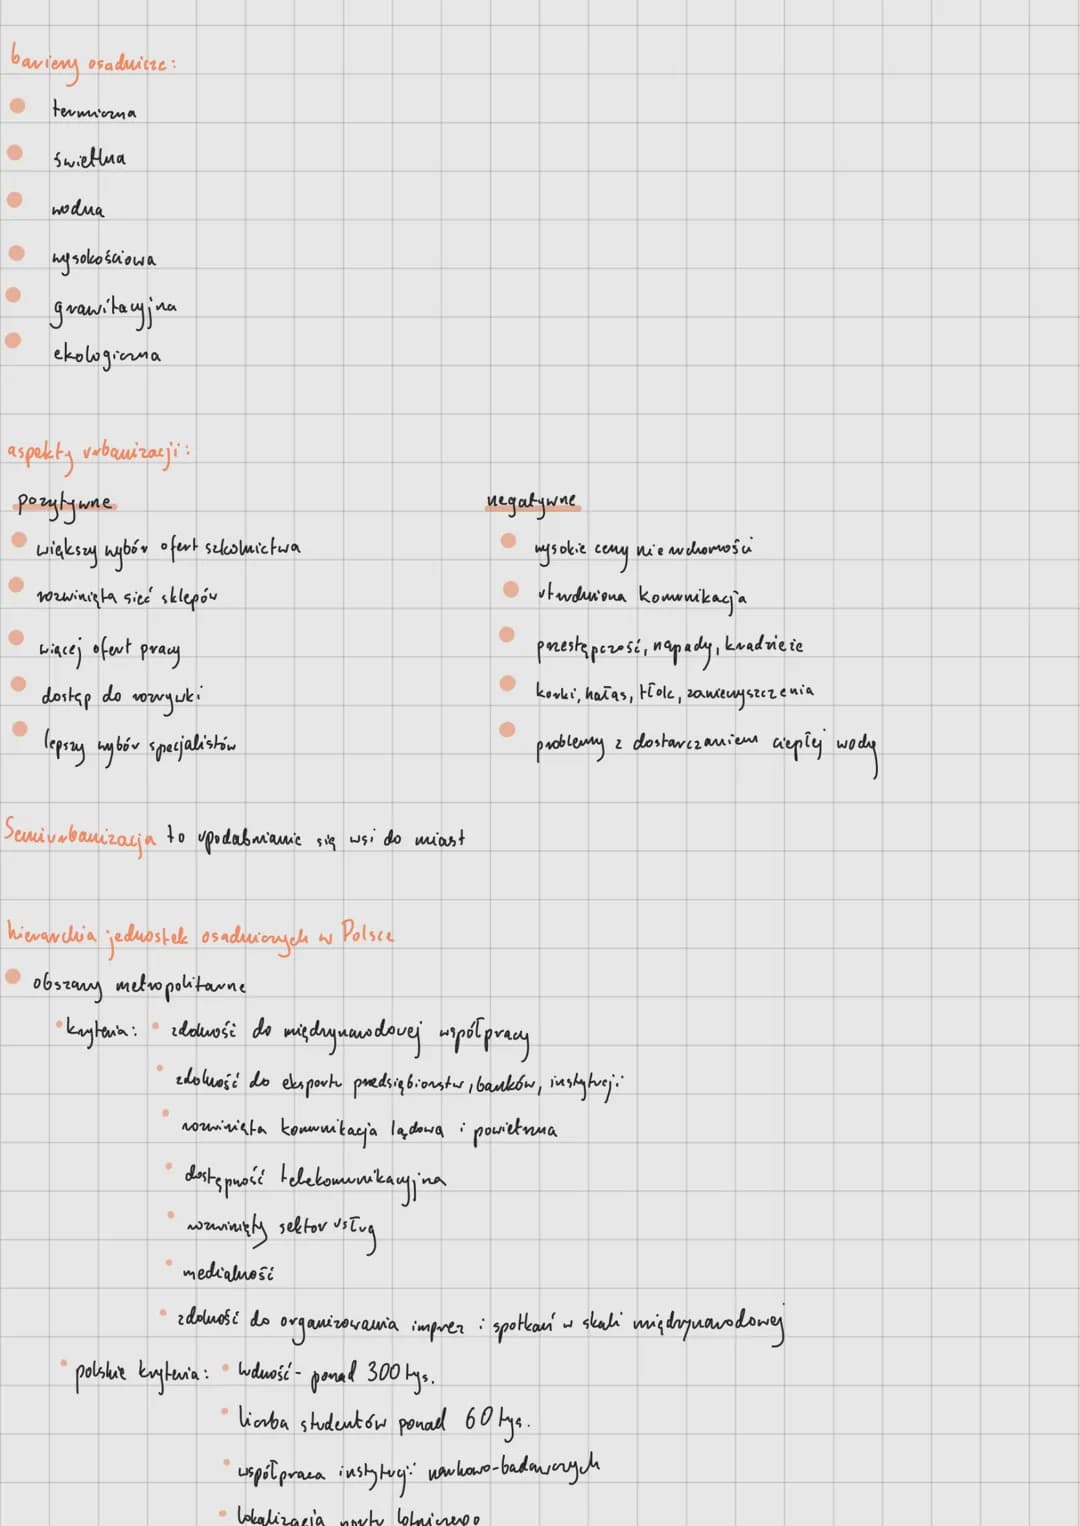 bariery osadnicze:
termiczna
świetlna
wodna
wysokościowa
grawitacyjna
ekologiczna
aspekty urbanizacji:
pozytywne
negatywne
większy wybór ofert szkolnictwa
wysokie ceny nieruchomości
rozwinięta sieć sklepów
utrudniona komunikacja
więcej ofert pracy
przestępczość, napady, kradzieże
dostęp do rozrywki
korki, hałas, tłok, zanieczyszczenia
lepszy wybór specjalistów
problemy z dostarczaniem ciepłej wody
Semiurbanizacja to upodabnianie się wsi do miast
hierarchia jednostek osadniczych w Polsce
obszary metropolitarne
kryteria: zdolność do międzynarodowej współpracy
zdolność do eksportu przedsiębiorstw, banków, instytucji
rozwinięta komunikacja lądowa i powietrzna
dostępność telekomunikacyjna
rozwinięty sektor usług
medialność
zdolność do organizowania imprez i spotkań w skali międzynarodowej
polskie kryteria: ludność - ponad 300 tys.
liczba studentów ponad 60 tys.
współpraca instytucji naukowo-badawczych
lokalizacja portu lotniczego